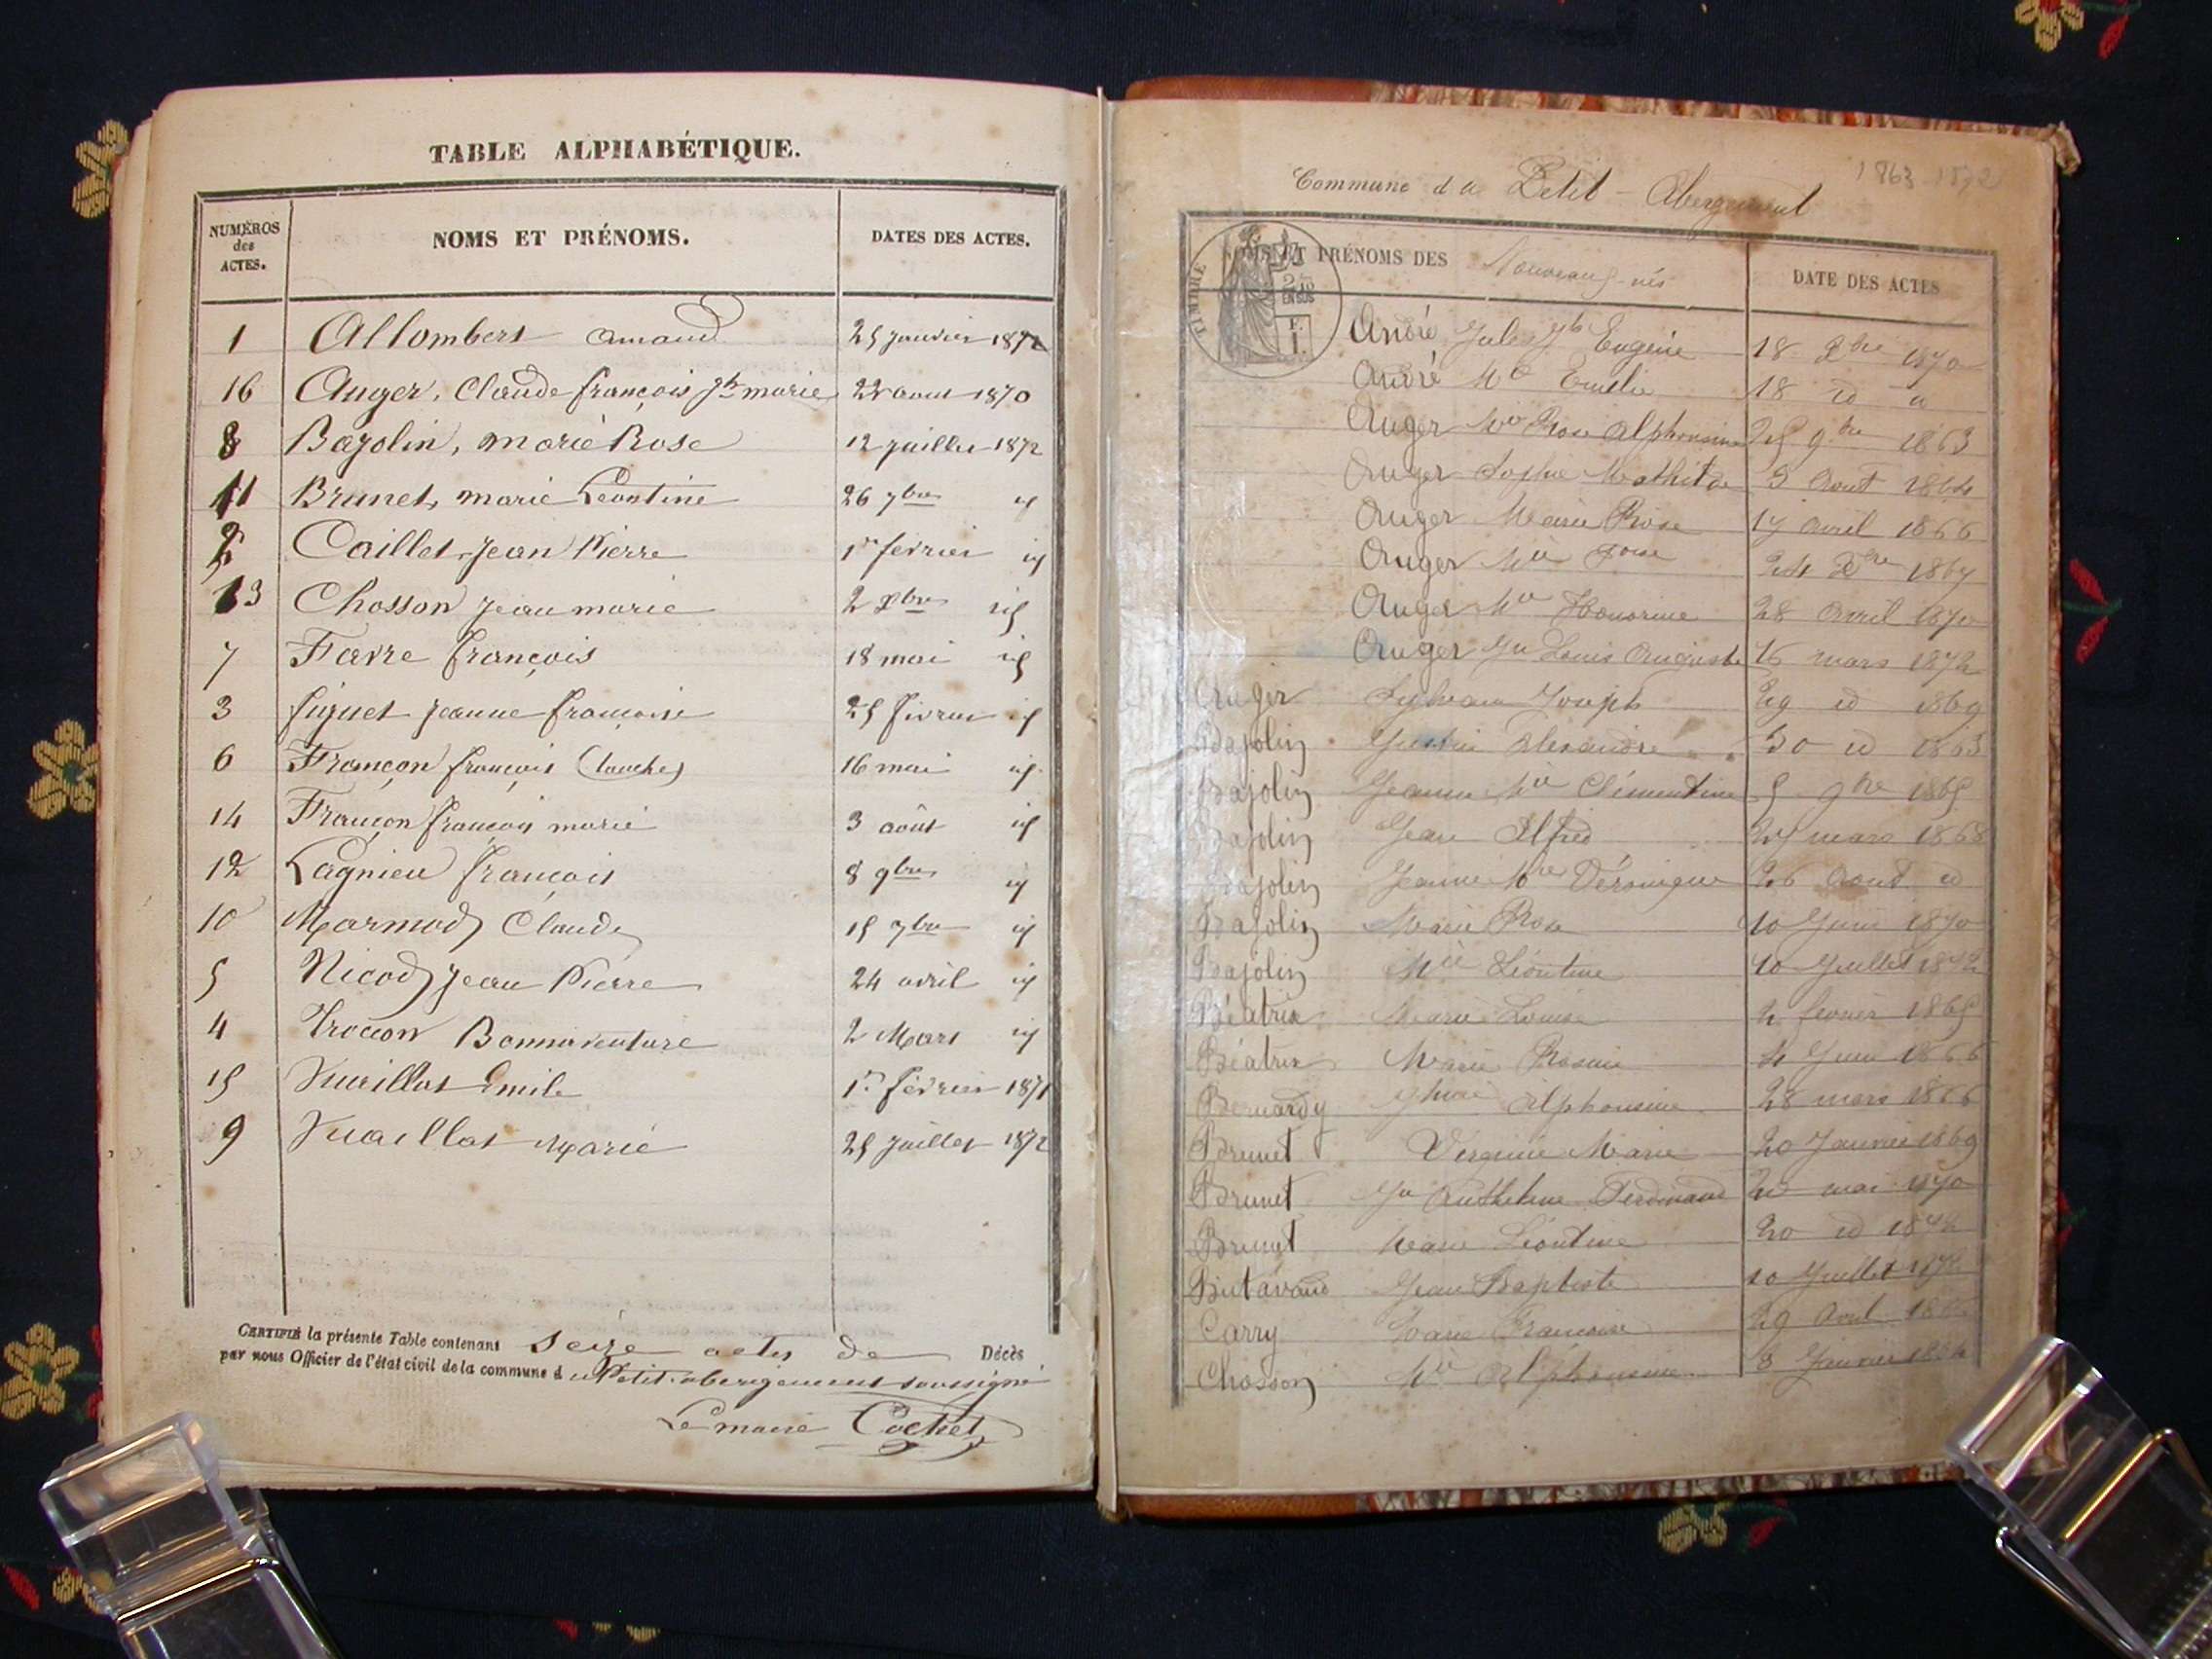 TABLE ALPHABÉTIQUE.
NUMÉROS des ACTES. NOMS ET PRÉNOMS. DATES DES ACTES.
1 Allombert amand 25 janvier 1872
16 Auger, Claude françois Jh marie 22 aout 1870
8 Bajolin, marie Rose 12 juillet 1872
11 Brunet, marie Léontine 26 7bre id
2 Caillet Jean Pierre 1er février id
13 Chosson jean marie 2 Xbre id
7 Favre françois 18 mai id
3 figuet jeanne françoise 25 février id
6 Françon françois 16 mai id
14 Françon françois marie 3 août id
12 Lagnieu françois 8 9bre id
10 Marmod Claude 15 7bre id
5 Nicod jean Pierre 24 avril id
4 Troccon Bonnaventure 2 Mars id
15 Vuaillat Emile 1er février 1871
9 Vuaillat Marie 25 juillet 1872
CERTIFIÉ la présente Table contenant seize actes de Décès
par nous Officier de l'état civil de la commune du Petit abergement soussigné
Le maire Cochet
1863-1872
Commune du Petit-Abergement
TIMBRE
2/10 EN SUS
F. 1.
NOMS ET PRÉNOMS DES Nouveaux-nés DATE DES ACTES
André Jules Jh Eugène 18 Xbre 1870
André Mie Emélie 18 id
Auger Mie Rose Alphonsine 25 9bre 1863
Auger Sophie Mathilde 3 Aout 1864
Auger Marie Rose 17 avril 1866
Auger Mie 24 Xbre 1867
Auger Mie Honorine 28 Avril 1870
Auger Jn Louis Auguste 16 mars 1872
Auger Sylvain Joseph 29 id 1869
Bajolin Alexandre 30 id 1863
Bajolin Jeanne Mie Clémentine 5 9bre 1865
Bajolin Jean Alfred mars 1868
Bajolin Jeanne Mie Véronique 26 Aout id
Bajolin Marie Rose 10 Juin 1870
Bajolin Mie Léontine 10 Juillet 1872
Béatrix Marie Louise 2 février 1865
Béatrix Marie 4 Juin 1866
Bernardy Alphonsine 28 mars 1866
Brunet Virginie Marie 20 Janvier 1869
Brunet Jn Anthelme Ferdinand mai 1870
Brunet Marie Léontine 20 id 1872
Butavand Jean Baptiste 10 Juillet 1872
Carry Marie Françoise 29 Aout
Chosson Mie Alphonsine 8 Janvier 1864